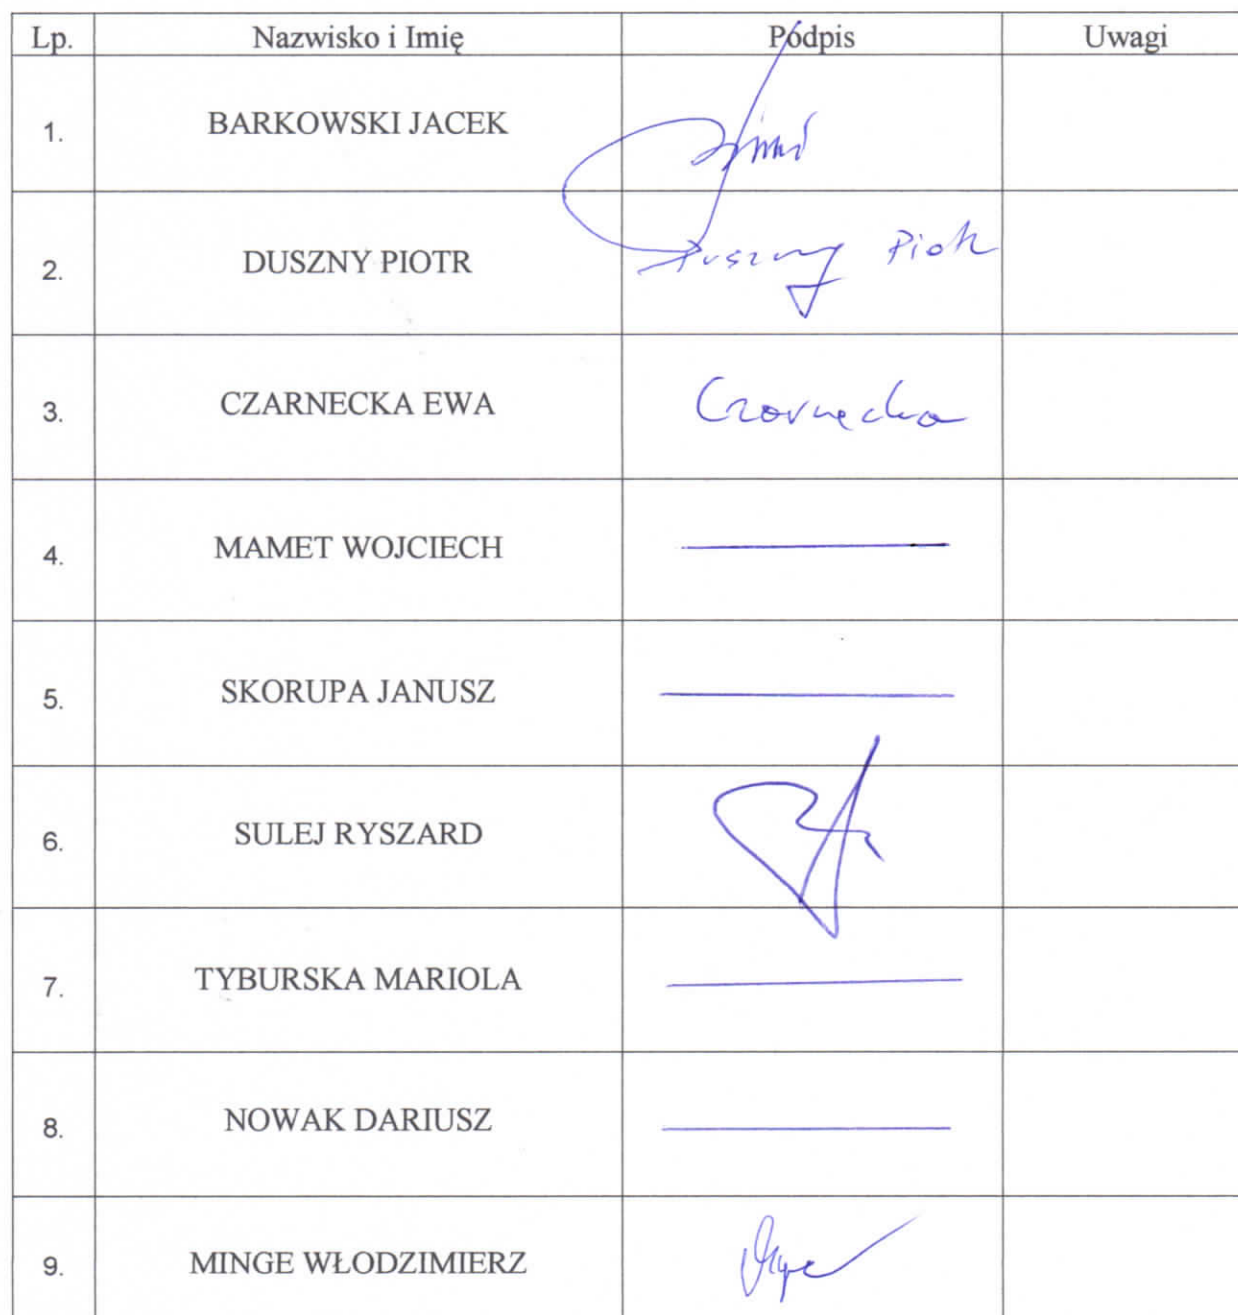 Lp. Nazwisko i Imię Podpis Uwagi
1. BARKOWSKI JACEK
2. DUSZNY PIOTR Duszny Piotr
3. CZARNECKA EWA Czarnecka
4. MAMET WOJCIECH
5. SKORUPA JANUSZ
6. SULEJ RYSZARD
7. TYBURSKA MARIOLA
8. NOWAK DARIUSZ
9. MINGE WŁODZIMIERZ